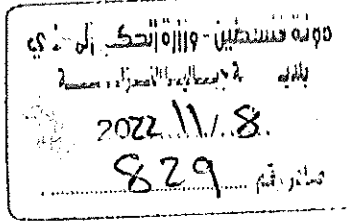 دولة فلسطين - وزارة الحكم المحلي
بلدية
2022/11/8
صادر رقم 829